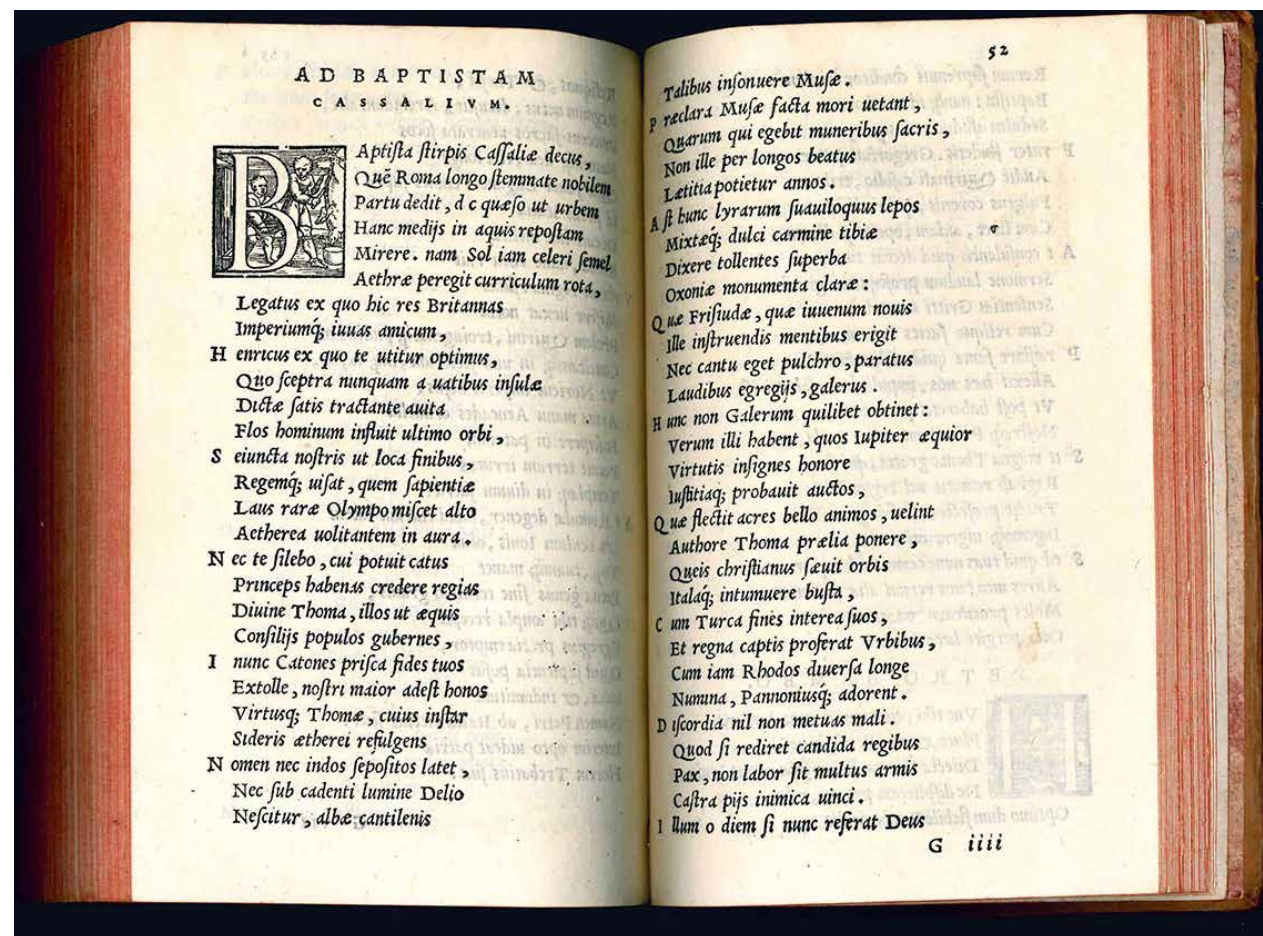 AD BAPTISTAM
CASSALIVM.
BAptista stirpis Cassaliæ decus,
Quẽ Roma longo stemmate nobilem
Partu dedit, d c quæso ut urbem
Hanc medijs in aquis repostam
Mirere. nam Sol iam celeri semel
Aethræ peregit curriculum rota,
Legatus ex quo hic res Britannas
Imperiumq; iuuas amicum,
Henricus ex quo te utitur optimus,
Quo sceptra nunquam a uatibus insulæ
Dictæ satis tractante auita
Flos hominum influit ultimo orbi,
Seiuncta nostris ut loca finibus,
Regemq; uisat, quem sapientiæ
Laus raræ Olympo miscet alto
Aetherea uolitantem in aura.
Nec te silebo, cui potuit catus
Princeps habenas credere regias
Diuine Thoma, illos ut æquis
Consilijs populos gubernes,
I nunc Catones prisca fides tuos
Extolle, nostri maior adest honos
Virtusq; Thomæ, cuius instar
Sideris ætherei refulgens
Nomen nec indos sepositos latet,
Nec sub cadenti lumine Delio
Nescitur, albæ cantilenis
52
Talibus insonuere Musæ.
Præclara Musæ facta mori uetant,
Quarum qui egebit muneribus sacris,
Non ille per longos beatus
Lætitia potietur annos.
Ast hunc lyrarum suauiloquus lepos
Mixtæq; dulci carmine tibiæ
Dixere tollentes superba
Oxoniæ monumenta claræ:
Quæ Frisiudæ, quæ iuuenum nouis
Ille instruendis mentibus erigit
Nec cantu eget pulchro, paratus
Laudibus egregijs, galerus.
Hunc non Galerum quilibet obtinet:
Verum illi habent, quos Iupiter æquior
Virtutis insignes honore
Iustitiaq; probauit auctos,
Quæ flectit acres bello animos, uelint
Authore Thoma prælia ponere,
Queis christianus sæuit orbis
Italaq; intumuere busta,
Cum Turca fines interea suos,
Et regna captis proferat Vrbibus,
Cum iam Rhodos diuersa longe
Numina, Pannoniusq; adorent.
Discordia nil non metuas mali.
Quod si rediret candida regibus
Pax, non labor sit multus armis
Castra pijs inimica uinci.
Illum o diem si nunc referat Deus
G iiii